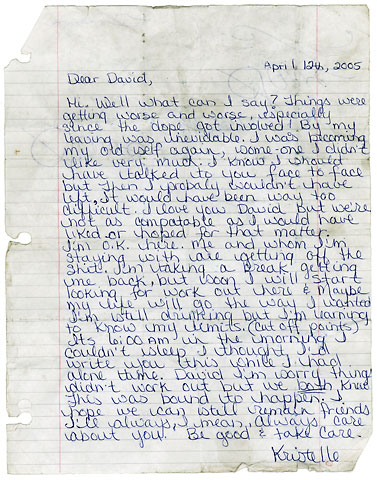 April 12th, 2005
Dear David,
Hi. Well what can I say? Things were
getting worse and worse, especially
since the dope got involved! By my
leaving was inevidable. I was becoming
my old self again, some-one I didn't
like very much. I know I should
have talked to you face to face
but then I probaly wouldn't have
left, It would have been way too
difficult. I love you David but we're
not as compatable as I would have
liked or hoped for that matter.
I'm O.K. here. me and whom I'm
staying with are getting off the
shit. I'm taking a break, getting
me back, but soon I will start
looking for work out here & Maybe
my life will go the way I wanted
I'm still drinking but I'm learning
to know my limits. (cut off points)
Its 6:00 AM in the morning I
couldn't sleep I thought I'd
write you this while I had
alone time. David I'm sorry things
didn't work out but we both knew
This was bound to happen. I
hope we can still remain friends
I'll always, I mean, Always, care
about you. Be good & take care.
Kristelle